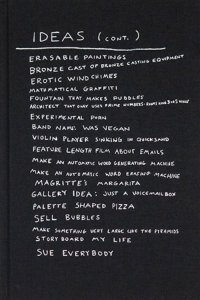 IDEAS (CONT.)
ERASABLE PAINTINGS
BRONZE CAST OF BRONZE CASTING EQUIPMENT
EROTIC WIND CHIMES
MATHEMATICAL GRAFFITI
FOUNTAIN THAT MAKES PUDDLES
ARCHITECT THAT ONLY USES PRIME NUMBERS
EXPERIMENTAL PORN
BAND NAME: WAS VEGAN
VIOLIN PLAYER SINKING IN QUICKSAND
FEATURE LENGTH FILM ABOUT EMAILS
MAKE AN AUTOMATIC WORD GENERATING MACHINE
MAKE AN AUTOMATIC WORD ERASING MACHINE
MAGRITTE'S MARGARITA
GALLERY IDEA: JUST A VOICEMAILBOX
PALETTE SHAPED PIZZA
SELL BUBBLES
MAKE SOMETHING VERY LARGE LIKE THE PYRAMIDS
STORYBOARD MY LIFE
SUE EVERYBODY